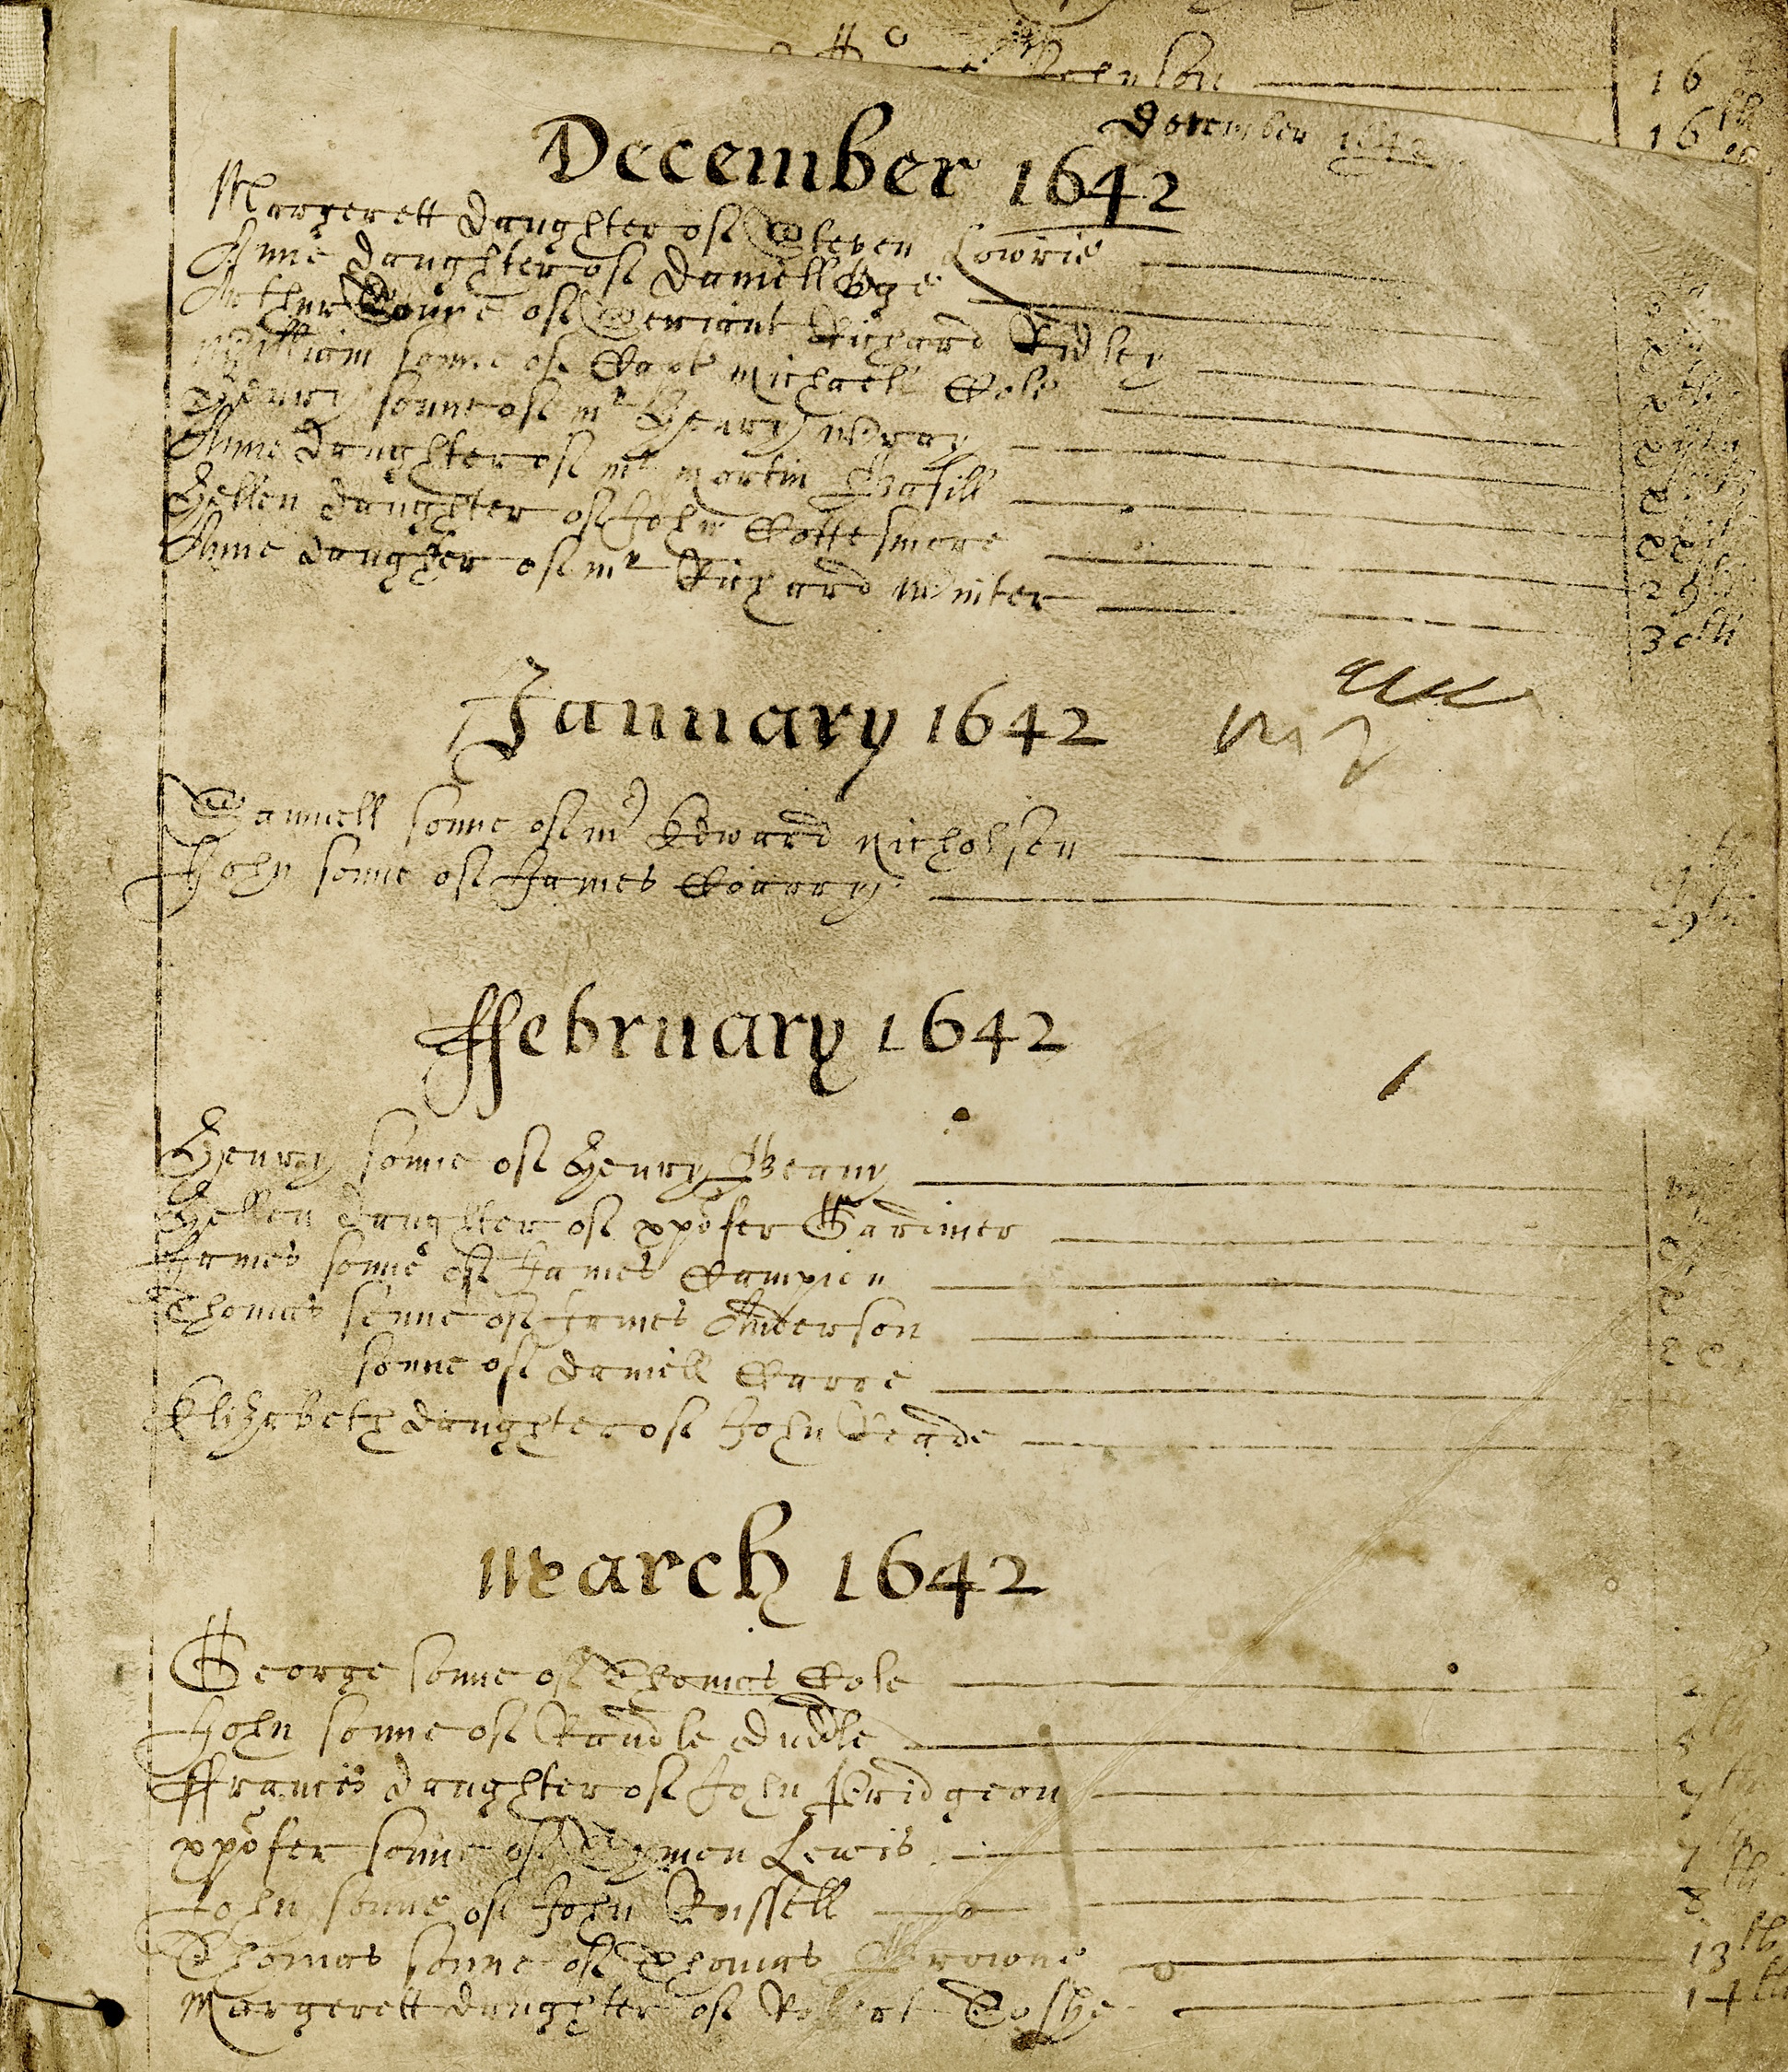 16
16th
December 1642
December 1642
Margerett daughter of Steven Lowrie
Anne daughter of Daniell Oge
Arthur Sonne of Seriant Richard Ridley
William sonne of Capt Michaell Cole
Henry sonne of mr Henry Wray
Anne daughter of mr Martin
Hellen daughter of John Cottesmore 29th
Anne daughter of mr Richard Winter 30th
January 1642
Samuell sonne of mr Edward Nicholson
John sonne of James
ffebruary 1642
Henry sonne of Henry
Hellen daughter of xpofer Gardiner
James sonne of James Campion
Thomas sonne of James Anderson
sonne of Daniell
Elizabeth daughter of John Reade
March 1642
George sonne of Thomas Cole 2
John sonne of Randle
ffrances daughter of John Pridgeon
xpofer sonne of Symon Lewis 7th
John sonne of John Russell 8th
Thomas sonne of Thomas Browne 13th
Margerett daughter of Robert 14th